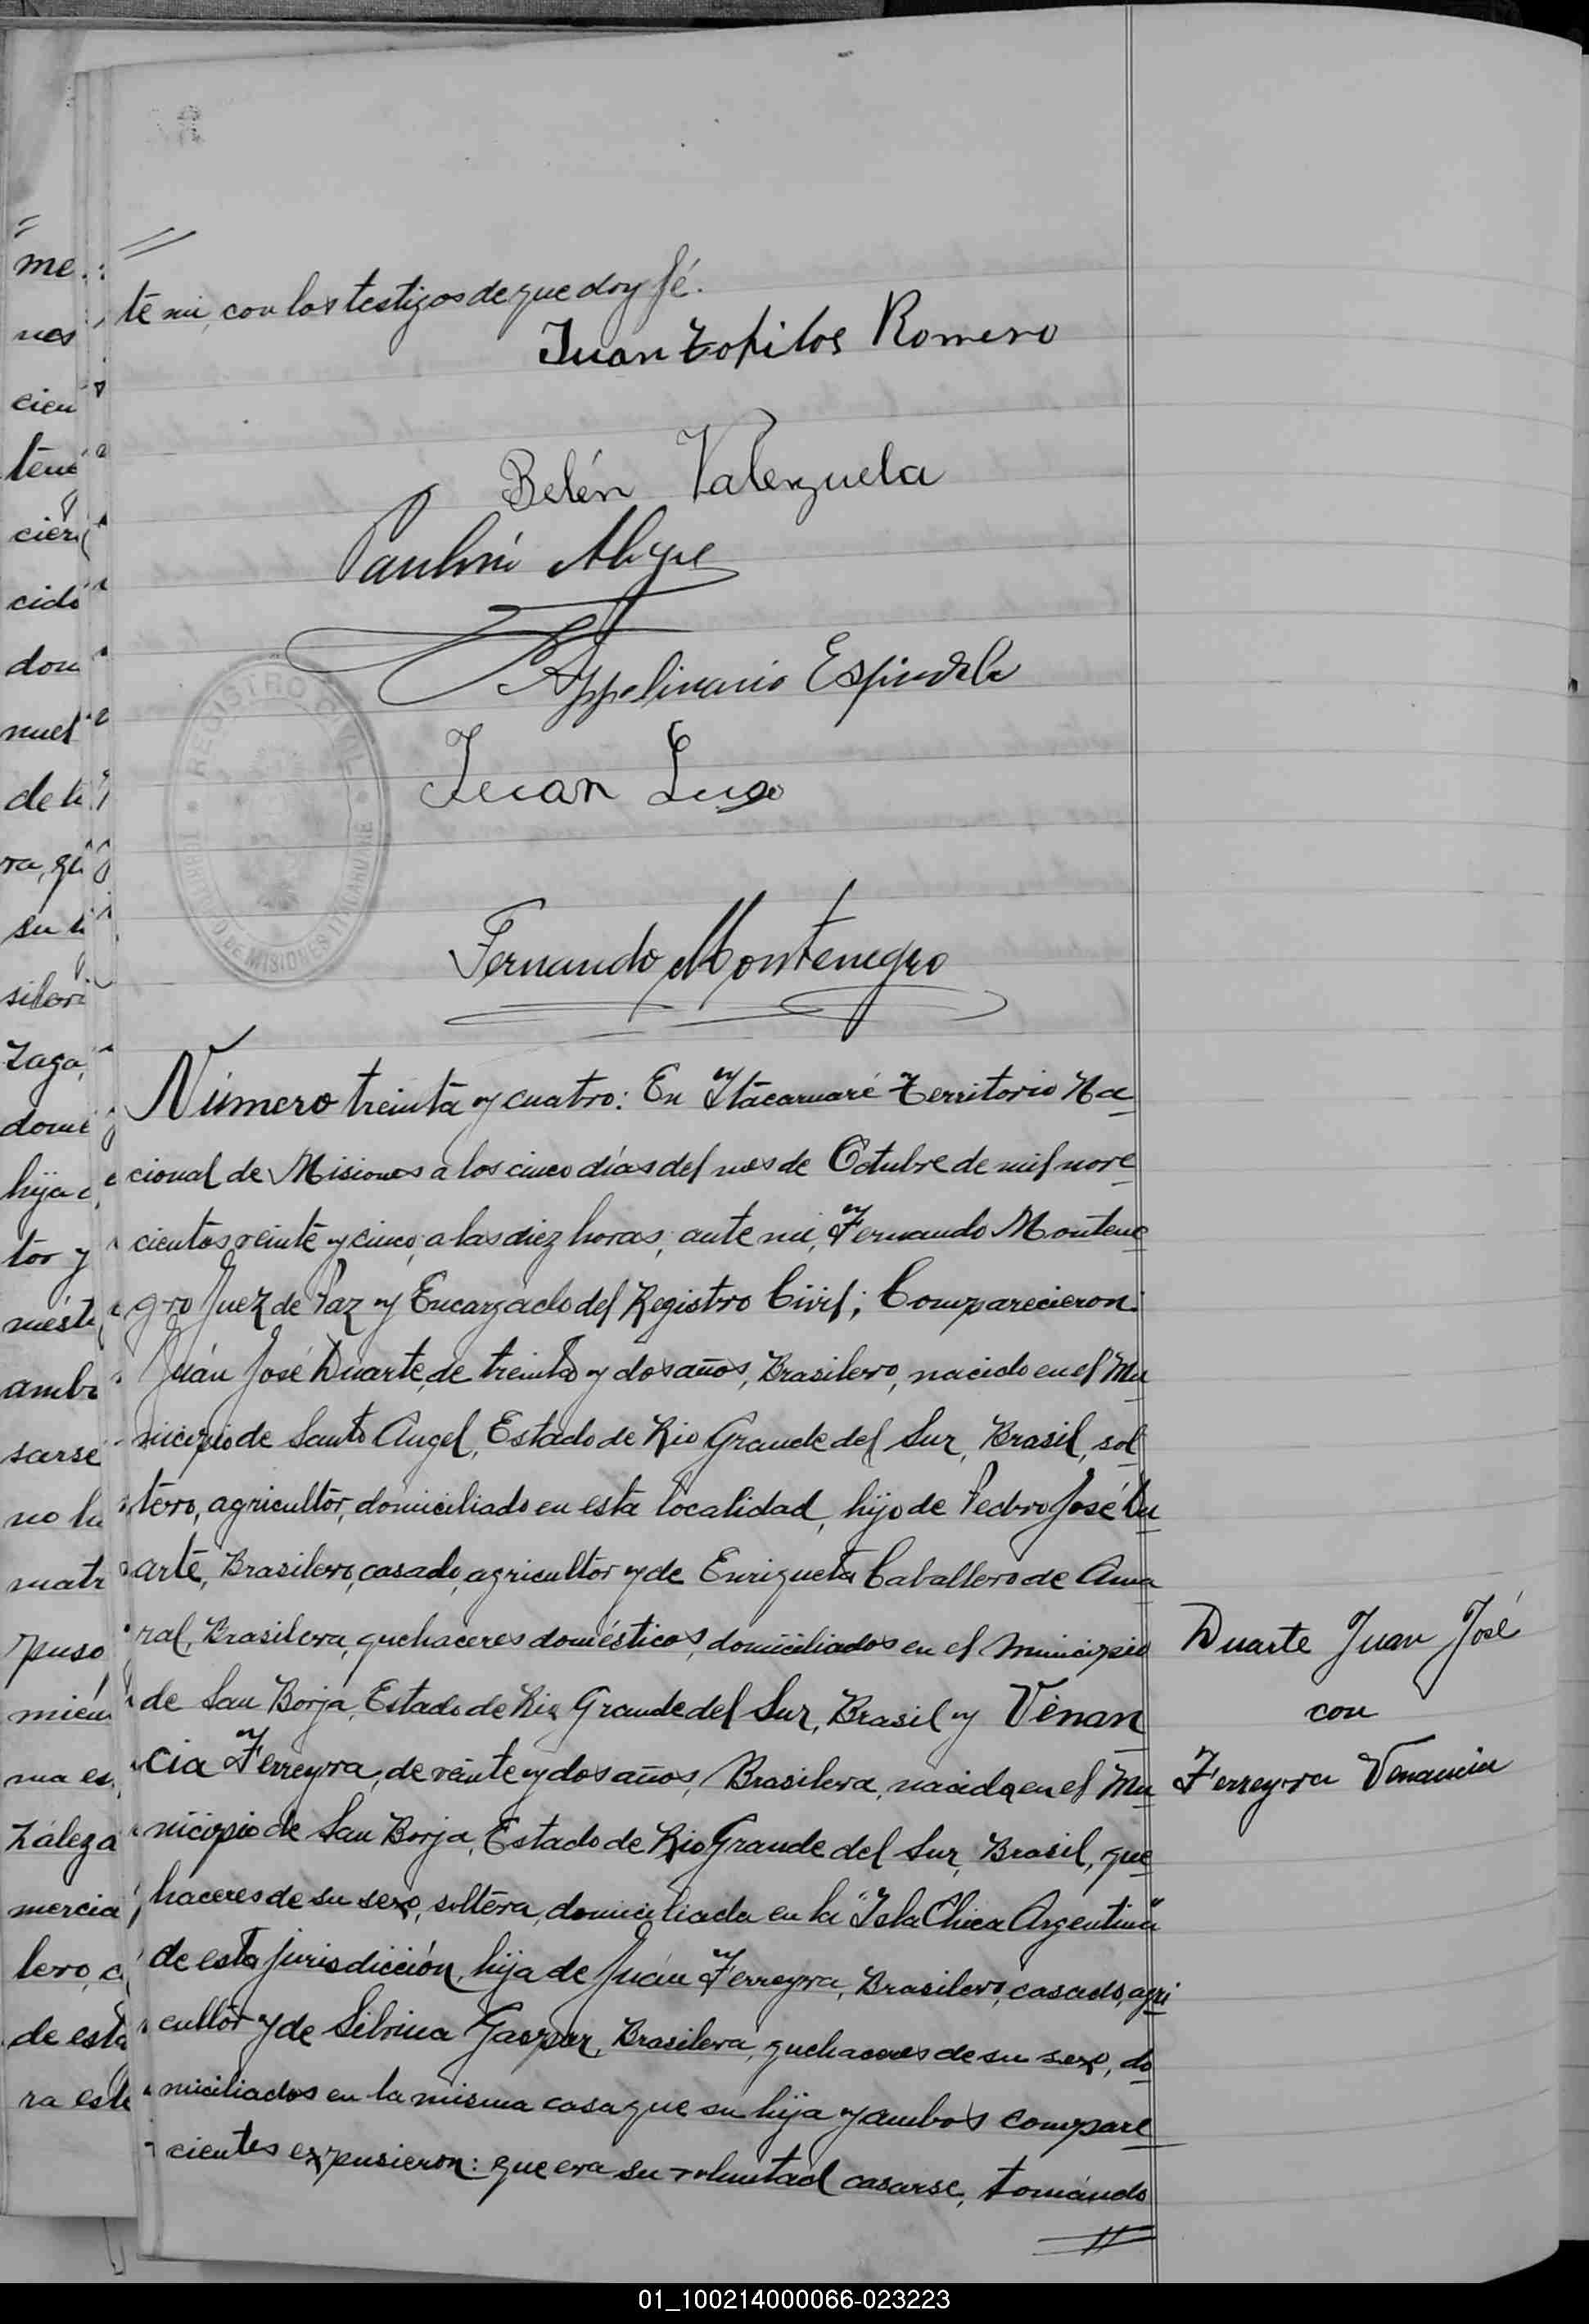 //
te mi, con los testigos de que doy fé.
Juan Romero
Belén Valenzuela
Appolinario Espindola
Juan Luso
REGISTRO CIVIL
TERRITORIO DE MISIONES ITACARUARE
Fernando Montenegro
Número treinta y cuatro: En Itacaruaré Territorio Na
cional de Misiones a los cinco días del mes de Octubre de mil nove
cientos veinte y cinco, a las diez horas, ante mi, Fernando Montene
gro Juez de Paz y Encargado del Registro Civil; Comparecieron:
Juán José Duarte, de treinta y dos años, Brasilero, nacido en el Mu
nicipio de Santo Angel, Estado de Rio Grande del Sur, Brasil, sol
tero, agricultor, domiciliado en esta localidad, hijo de Pedro José Du
arte, Brasilero, casado, agricultor y de Enriqueta Caballero de Ama
ral, Brasilera, quehaceres domésticos, domiciliados en el Municipio
de San Borja, Estado de Rio Grande del Sur, Brasil y Venan
cia Ferreyra, de veinte y dos años, Brasilera, nacida en el Mu
nicipio de San Borja, Estado de Rio Grande del Sur, Brasil, que
haceres de su sexo, soltera, domiciliada en la "Isla Chica Argentina"
de esta jurisdicción, hija de Juán Ferreyra, Brasilero, casado, agri
cultor y de Silvina Gaspar, Brasilera, quehaceres de su sexo, do
miciliados en la misma casa que su hija y ambos compare
cientes expusieron: que era su voluntad casarse, tomándo
//
Duarte Juan José
con
Ferreyra Venancia
me
nos
cien
tené
cier
cidó
dom
nuel
de la
ra, qu
su
silera
zaga,
domi
hija
tor y
mést
amb
sarse
no ha
matr
puso
mien
ma es
záleza
mercia
lero, c
de esta
ra este
01_100214000066-023223